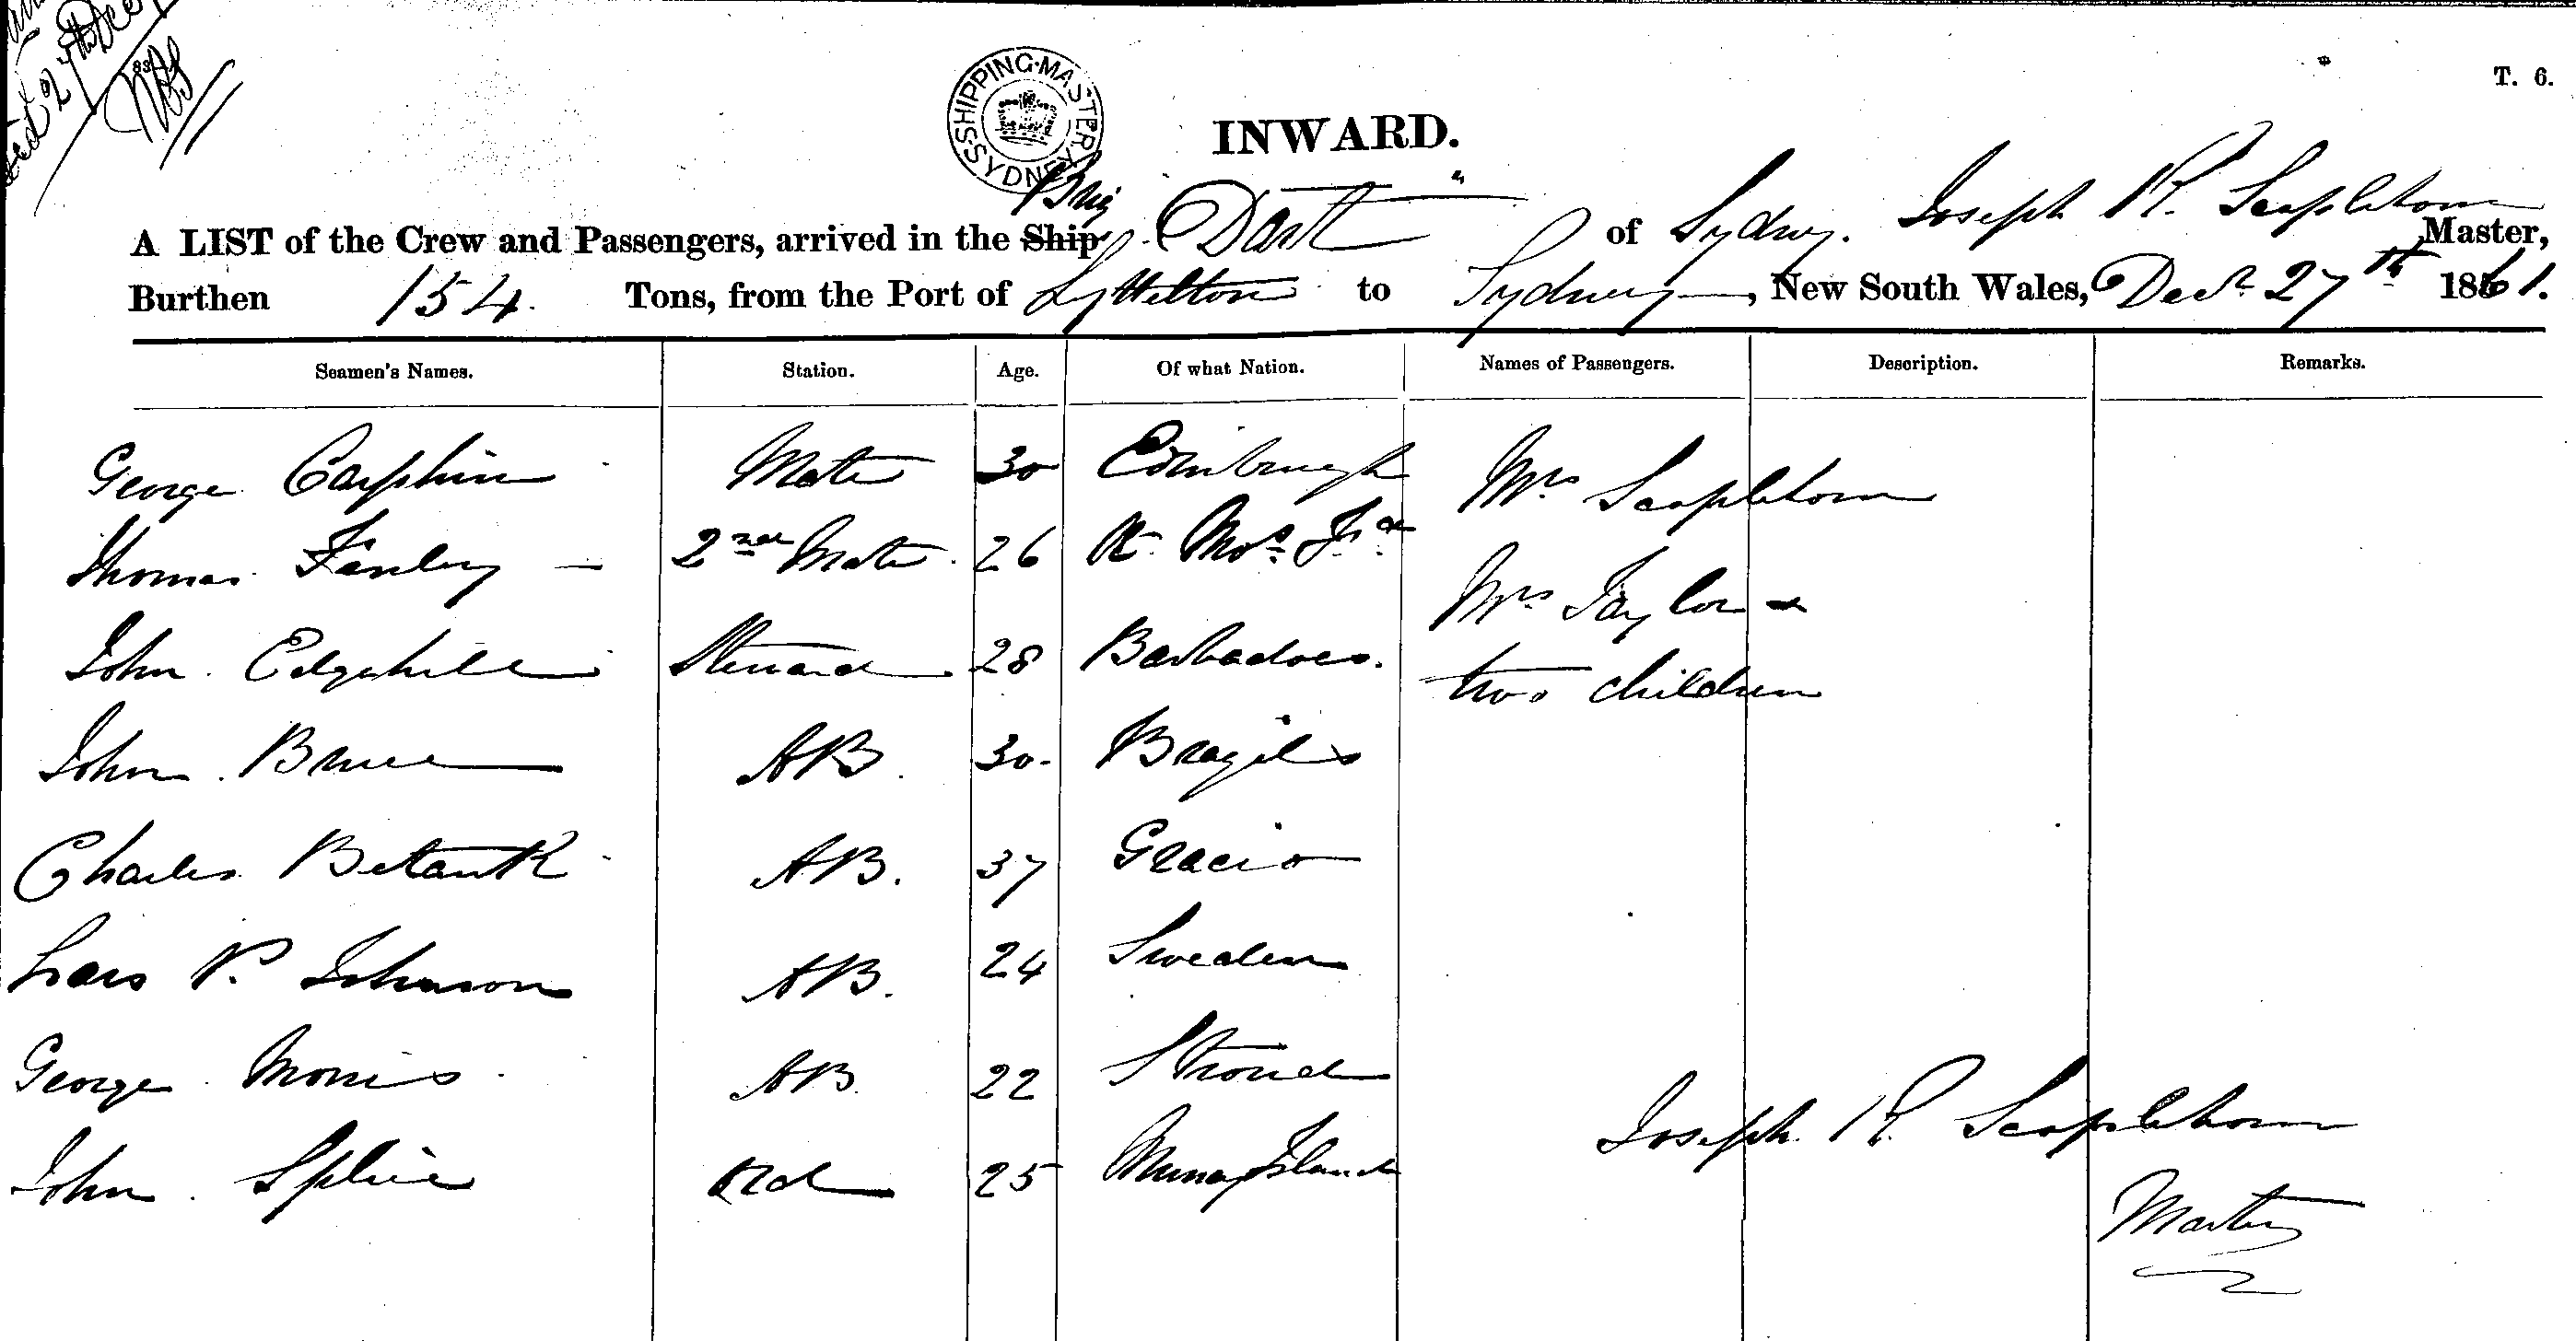 T. 6.
SHIPPING·MASTER·SYDNEY
INWARD.
A LIST of the Crew and Passengers, arrived in the Ship Brig "Dart" of Sydney. Joseph R. Scaplehorn Master,
Burthen 154 Tons, from the Port of Lyttelton to Sydney, New South Wales, Decr 27th 1861.
Seamen's Names. Station. Age. Of what Nation. Names of Passengers. Description. Remarks.
George Carphin Mate 30 Edinburugh Mrs Scaplehorn
Thomas 2nd Mate 26
Mrs Taylor &
John Edgehill Steward 28 Barbadoes. two children
John Bruce AB. 30. Brazils
Charles AB. 37
Lars P. Johnson AB. 24 Sweden
George Morris AB 22 Stroud
John Splice Ord 25 Island
Joseph R. Scaplehorn
Master